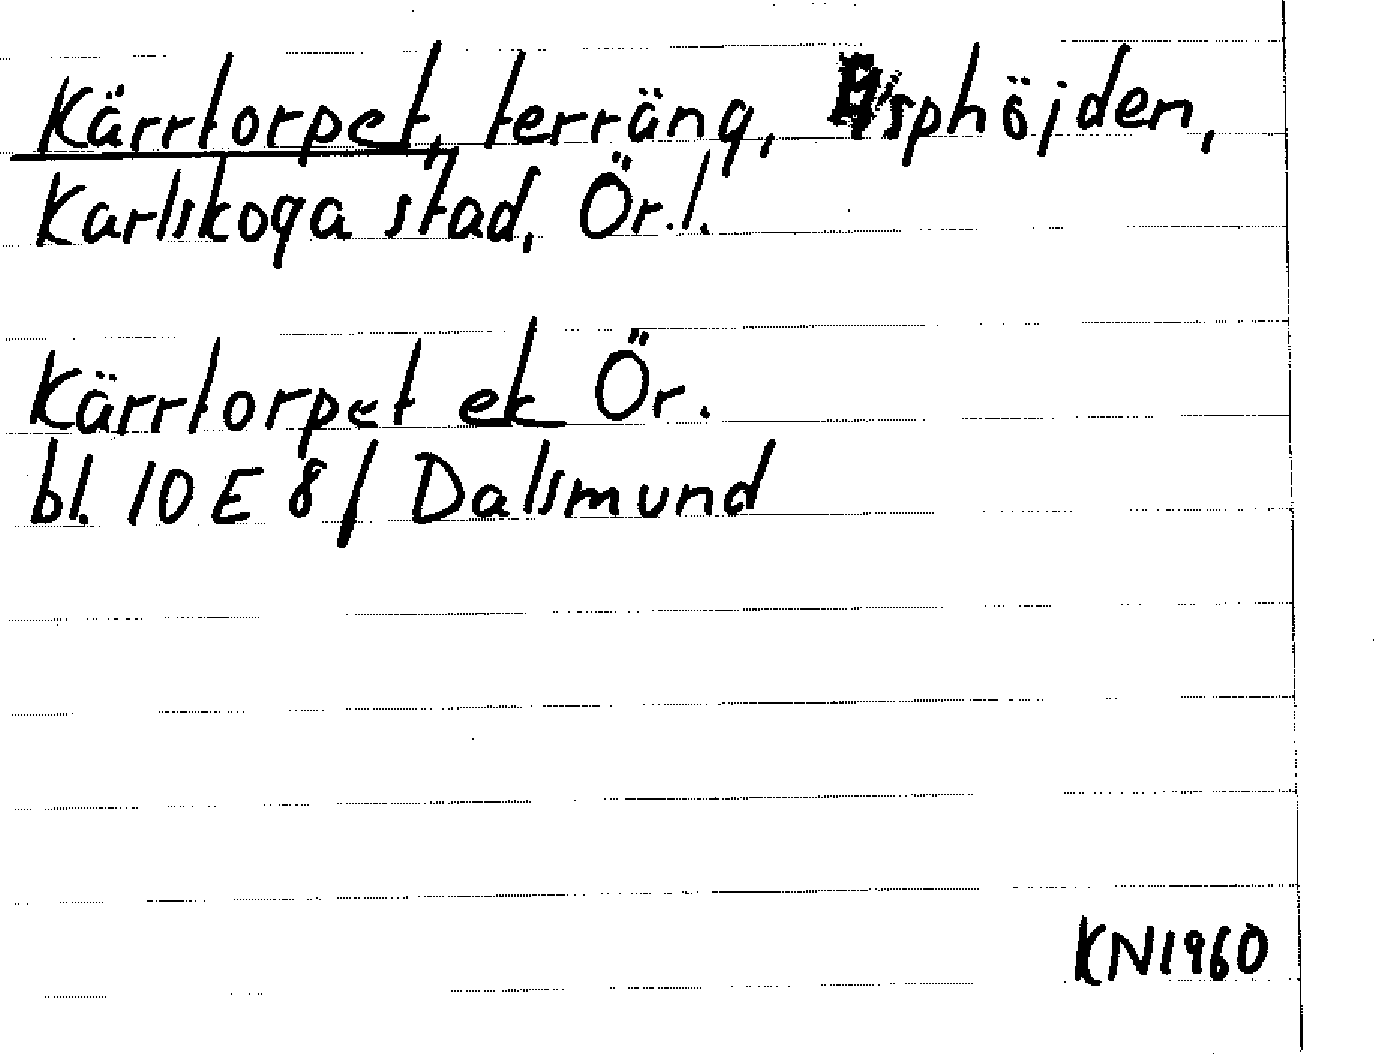 Kärrtorpet, terräng, sphöjden,
Karlskoga stad, Ör.l.
Kärrtorpet ek Ör.
bl. 10 E 8 f Dalsmund
KN1960